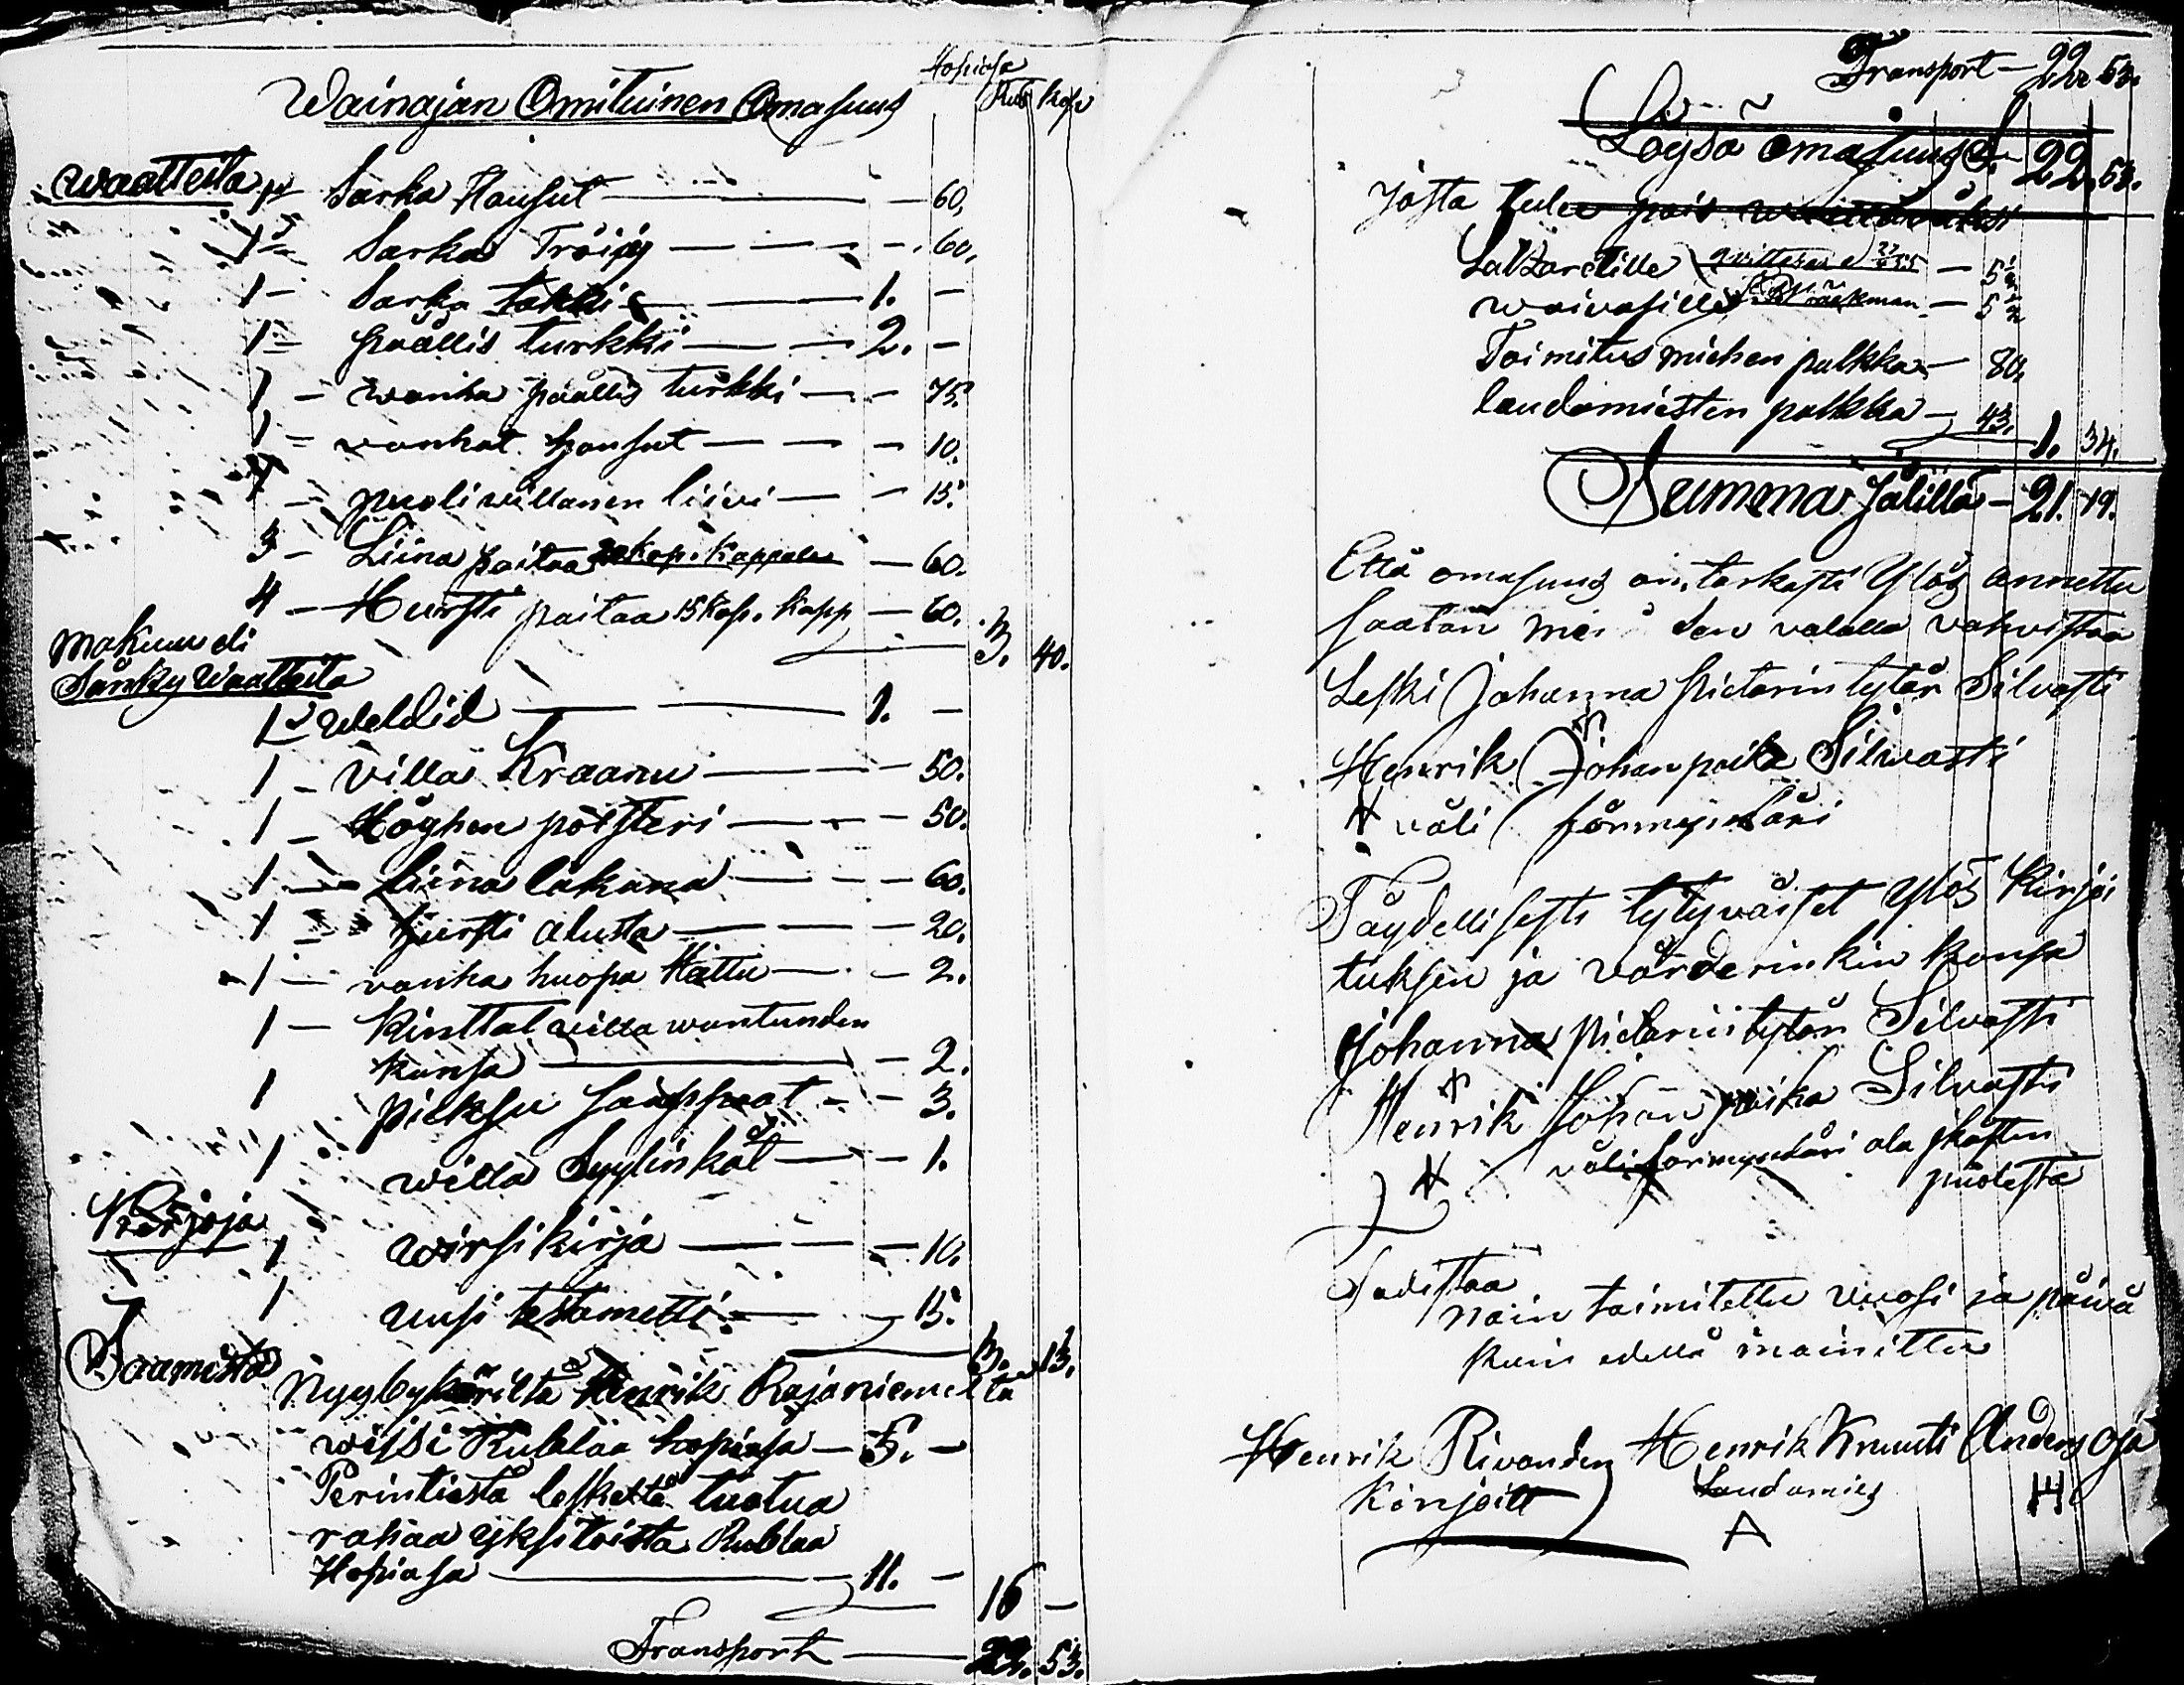 Hopiasa
Wainajan Omituinen Omasuus Rub Kop
Waatteita
1 Sarka Housut — 60.
1 — Sarka Tröijy — 60.
1 — Sarka takki — 1. —
1 — päällis turkki — 2. —
1 — wanha päällis turkki — 75.
1 — vanhat housut — 10.
1 — puoli willanen liivi — 15.
3 — Liina paitaa 20 Kop. Kappale — 60.
4 — Hursti paitaa 15 Kop. Kapp — 60. 3. 40.
Makuu eli
Sänky Waatteita
1 — Weldid — 1. —
1 — Villa Kraanu — 50.
1 — Höyhen pölsteri — 50.
1 — Liina lakana — 60.
1 — Hursti alusta — 20.
1 — vanha huopa Hattu — 2.
1 — Kinttat villa wantunden
kansa — 2.
1 pieksu saappaat — 3.
1 willa Syylinkät — 1.
Kirjoja
1 wirsi kirja — 10.
1 uusi testametti — 15. 3. 13.
Saamista
Nyybykäriltä Henrik Rajaniemeltä
wissi Rublaa hopiasa — 5. —
Perintiästä leskeltä tuotua
rahaa yksitoista Rublaa
Hopiasa — 11. — 16 —
Transport — 22. 53.
Transport — 22. 53.
Löysä omasuus S. 22. 53.
Josta tulee pois
Latzaretille — 5 1/2
waivasille — 5 1/2
Toimitus miehen palkka — 80.
laudamiesten palkka — 43. 1. 34.
Summa Jälillä — 21. 19.
Että omasuus on tarkasti Ylös annettu
saatan mei den valalla vahvistaa
Leski Johanna Pietarin tytär Silvasti
Henrik Johan poika Silwasti
väli förmyndäri
Täydellisesti tytyväiset Ylös Kirjoi
tuksen ja värderinkin kansa
Johanna Pietarin tytär Silvasti
Henrik Johan poika Silvasti
väli förmyndäri ala ikästen
puolesta
Todistaa
näin toimitettu vuosi ja päivä
kuin edellä mainittu
Henrik Rivanden Henrik Knuuti Anders Oja
Kirjoitt Laudamies